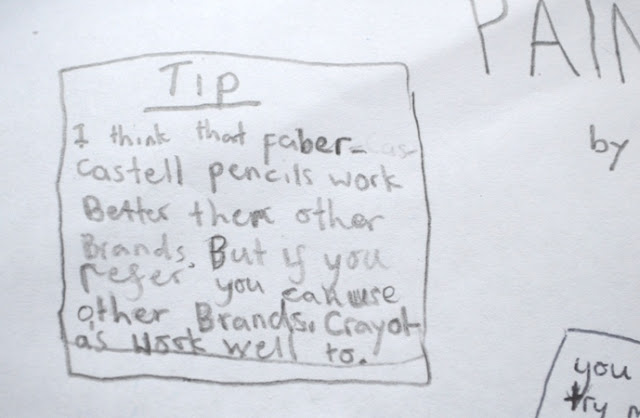 Tip
I think that faber-
castell pencils work
Better then other
Brands. But if you
refer you can use
other Brands. Crayol-
as work well to.
PAIN
by
you
try